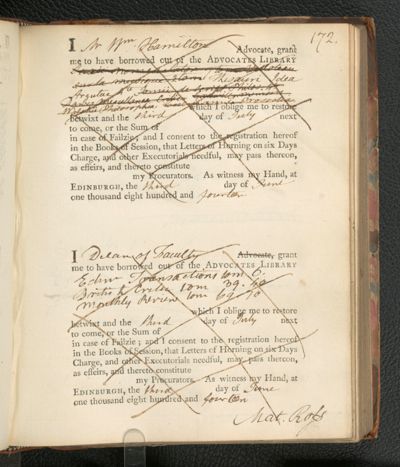 172.
I Mr Wm Hamilton Advocate, grant
me to have borrowed out of the ADVOCATES LIBRARY
Thesauri Idea
which I oblige me to restore
betwixt and the third day of July next
to come, or the Sum of
in case of Failzie; and I consent to the registration hereof
in the Books of Session, that Letters of Horning on six Days
Charge, and other Executorials needful, may pass thereon,
as effeirs, and thereto constitute
my Procurators. As witness my Hand, at
EDINBURGH, the third day of June
one thousand eight hundred and fourteen
I Dean of Faculty Advocate, grant
me to have borrowed out of the ADVOCATES LIBRARY
Edinr Transactions tom 6.
British Critic tom 39. 40
Monthly Review tom 69. 70
which I oblige me to restore
betwixt and the third day of July next
to come, or the Sum of
in case of Failzie; and I consent to the registration hereof
in the Books of Session, that Letters of Horning on six Days
Charge, and other Executorials needful, may pass thereon,
as effeirs, and thereto constitute
my Procurators. As witness my Hand, at
EDINBURGH, the third day of June
one thousand eight hundred and fourteen
Mat. Ross